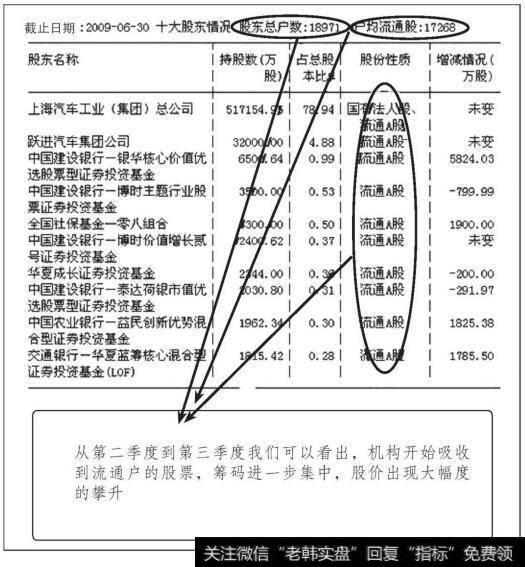 截止日期:2009-06-30 十大股东情况 股东总户数:18971 户均流通股:17268
股东名称 持股数(万股) 占总股本比% 股份性质 增减情况(万股)
上海汽车工业（集团）总公司 517154.95 78.94 国有法人股、流通A股 未变
跃进汽车集团公司 32000.00 4.88 流通A股 未变
中国建设银行—银华核心价值优选股票型证券投资基金 6500.64 0.99 流通A股 5824.03
中国建设银行—博时主题行业股票证券投资基金 3500.00 0.53 流通A股 -799.99
全国社保基金一零八组合 3300.00 0.50 流通A股 1900.00
中国建设银行—博时价值增长贰号证券投资基金 2400.62 0.37 流通A股 未变
华夏成长证券投资基金 2344.00 0.36 流通A股 -200.00
中国建设银行—泰达荷银市值优选股票型证券投资基金 2030.80 0.31 流通A股 -291.97
中国农业银行—益民创新优势混合型证券投资基金 1962.34 0.30 流通A股 1825.38
交通银行—华夏蓝筹核心混合型证券投资基金(LOF) 1815.42 0.28 流通A股 1785.50
从第二季度到第三季度我们可以看出，机构开始吸收
到流通户的股票，筹码进一步集中，股价出现大幅度
的攀升
关注微信"老韩实盘"回复"指标"免费领